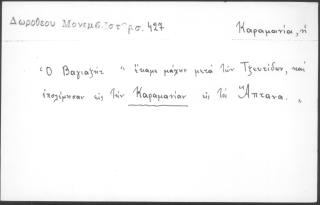 Δωροθέου Μονεμβ. Ιστ ρσ. 427
Καραμανία, ἡ
Ὁ Βαγιαζὴτ " ἔκαμε μάχην μετὰ τῶν Τζεντίδων, καὶ
ἐπολέμησαν εἰς τὴν Καραμανίαν εἰς τὰ Ἄπτανα. "